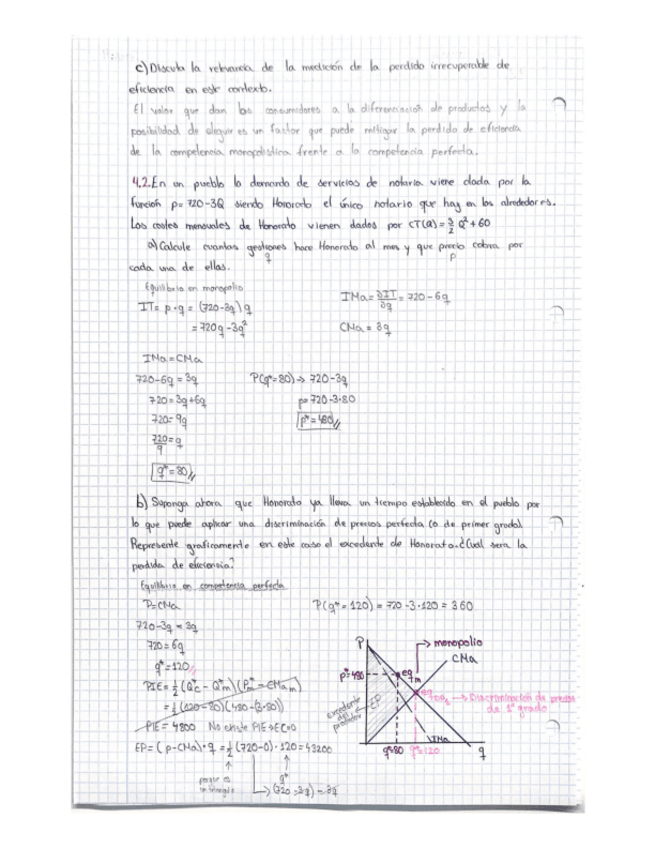 c) Discuta la relevancia de la medición de la perdida irrecuperable de
eficiencia en este contexto.
El valor que dan los consumidores a la diferenciación de productos y la
posibilidad de elegir es un factor que puede mitigar la perdida de eficiencia
de la competencia monopolística frente a la competencia perfecta.
4.2. En un pueblo la demanda de servicios de notaria viene dada por la
función p= 720-3Q siendo Honorato el único notario que hay en los alrededores.
Los costes mensuales de Honorato vienen dados por CT(Q) = 3/2 Q² + 60
a) Calcule cuantas gestiones hace Honorato al mes y que precio cobra por
q p
cada una de ellas.
Equilibrio en monopolio
IT = p·q = (720-3q)q
= 720q - 3q²
IMa = ∂IT/∂q = 720-6q
CMa = 3q
IMa = CMa
720-6q = 3q
720 = 3q+6q
720 = 9q
720/9 = q
q* = 80
P(q*=80) → 720-3q
p= 720-3·80
p* = 480
b) Suponga ahora que Honorato ya lleva un tiempo establecido en el pueblo por
lo que puede aplicar una discriminación de precios perfecta (o de primer grado)
Represente graficamente en este caso el excedente de Honorato. ¿Cual sera la
perdida de eficiencia?
Equilibrio en competencia perfecta
P=CMa
720-3q = 3q
720 = 6q
q* = 120
P(q* = 120) = 720 - 3·120 = 360
PIE = 1/2 (Q*c - Q*m)(P*m - CMa m)
= 1/2 (120-80)(480-(3·80))
PIE = 4800 No existe PIE → EC=0
EP = (p-CMa)·q = 1/2 (720-0)·120 = 43200
porque es
un triangulo
q*
(720-3q) - 3q
P
monopolio
CMa
p*=480
eq m
excedente
del
productor
EP
eq DP1 → Discriminación de precios
de 1º grado
IMa
q*=80
q*=120
q